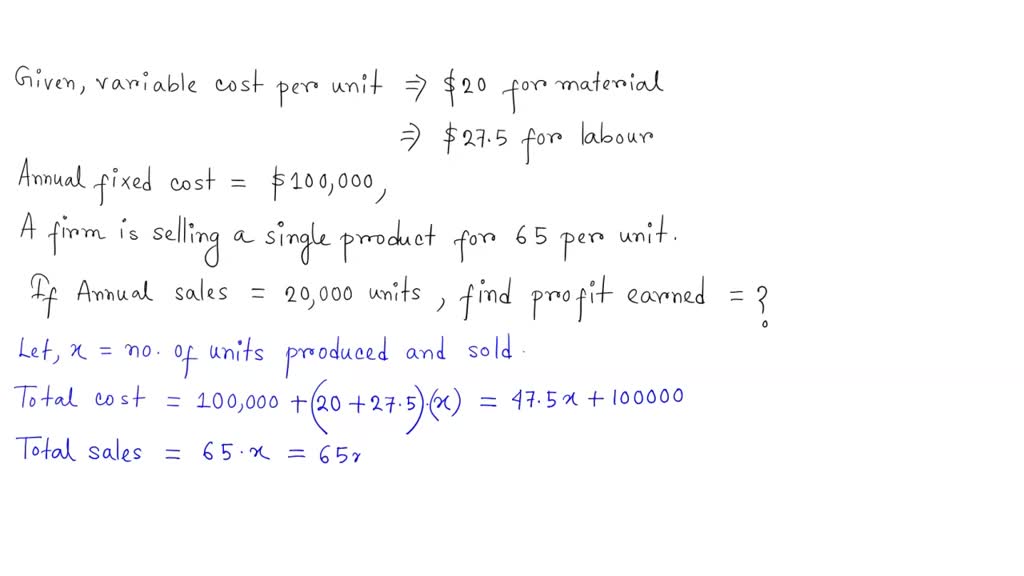 Given, variable cost per unit ⇒ $20 for material
⇒ $27.5 for labour
Annual fixed cost = $100,000,
A firm is selling a single product for 65 per unit.
If Annual sales = 20,000 units, find profit earned = ?
Let, x = no. of units produced and sold.
Total cost = 100,000 + (20 + 27.5)·(x) = 47.5x + 100000
Total sales = 65·x = 65x